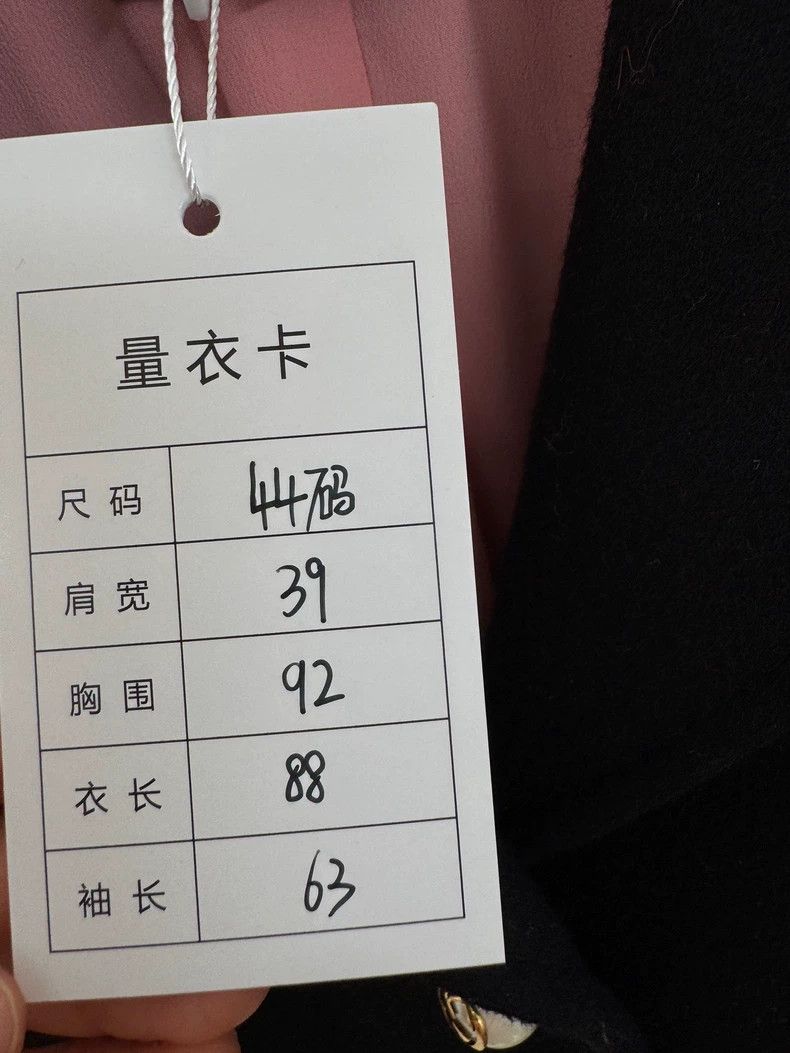 量衣卡
尺码 44码
肩宽 39
胸围 92
衣长 88
袖长 63